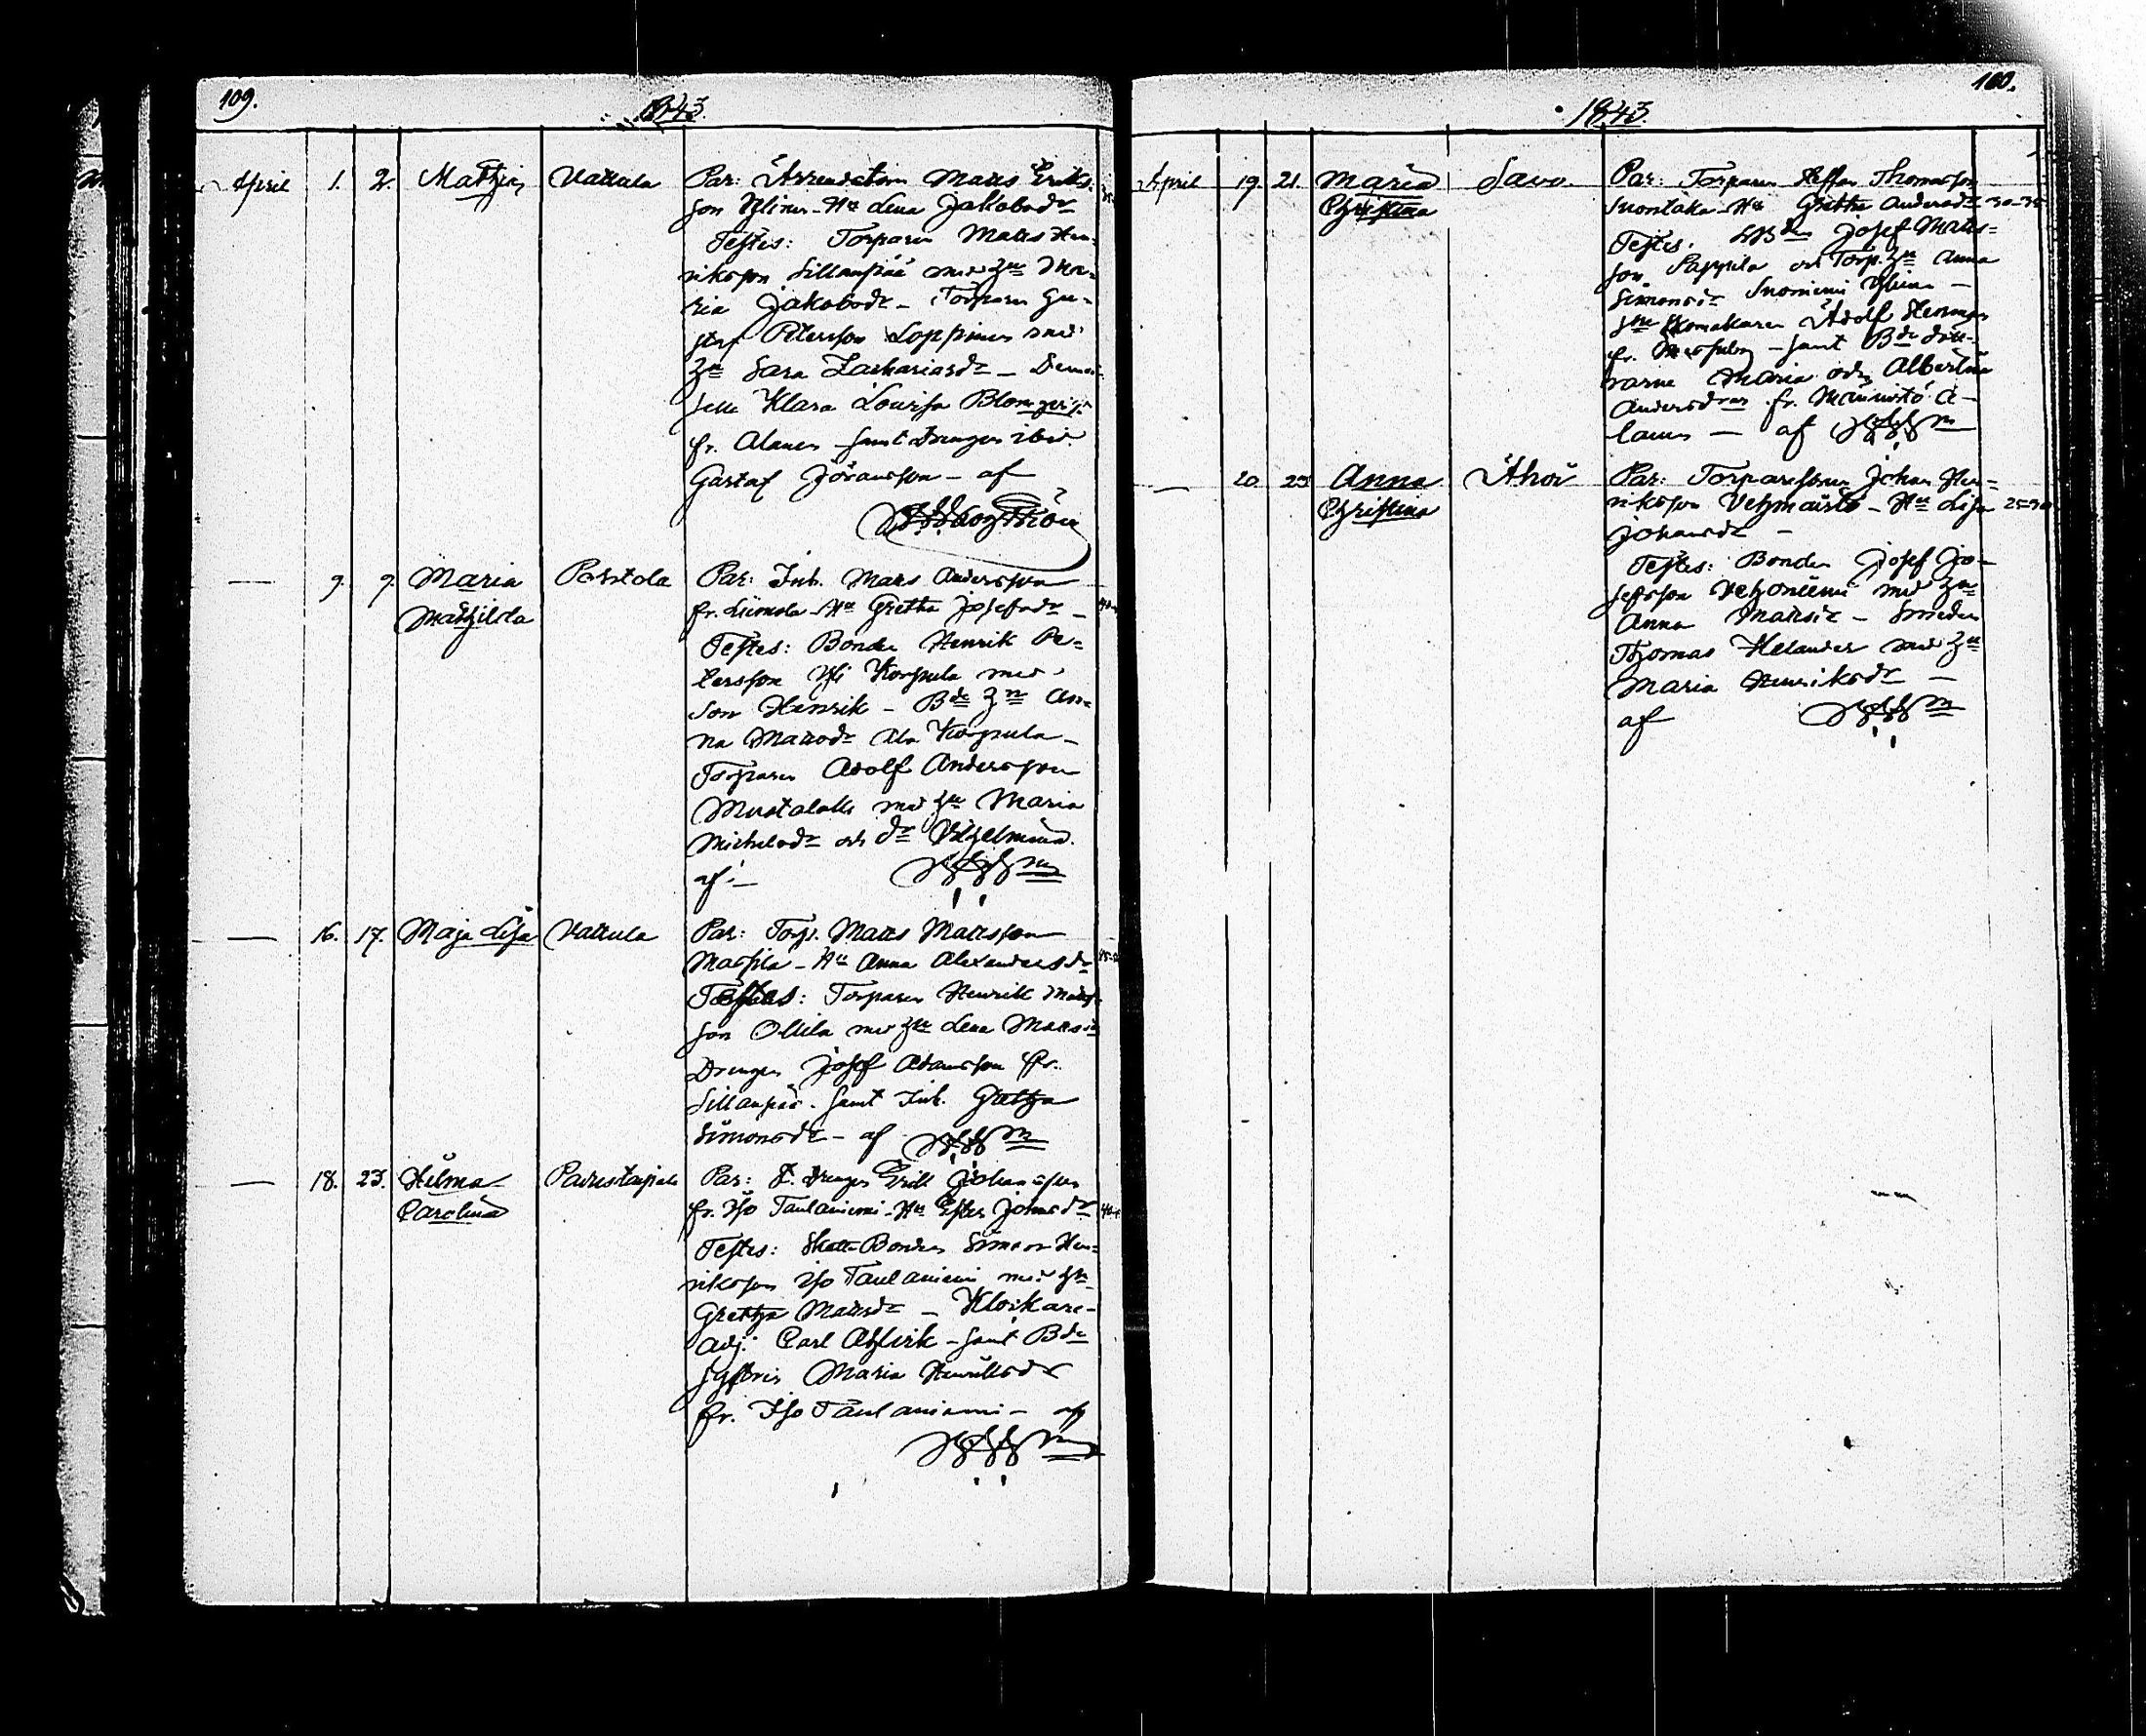 109.
1843.
April 1. 2. Mathias Vattula Par: Arrendatorn Matts Eriks-
son Yliner - Hu Lena Jakobsdr
Testes: Torparen Matts Hen-
riksson Sillanpää med hu Ma-
ria Jakobsdr - Torparen Gu-
staf Petersson Loppinen med
hu Sara Zachariasdr - Demoi-
selle Klara Lovisa Blomqvist
fr. Alanen samt Drengen ibid.
Gustaf Göransson - af
— 9. 9. Maria Parstola Par: Inh. Matts Andersson
Mathilda fr. Liimola - Hu Gretha Josefsdr -
Testes: Bonden Henrik Pe-
tersson Yli Korpula med
Son Henrik - Bde hu An-
na Mattsdr Ala Korpula -
Torparen Adolf Andersson
Mustalaks med hu Maria
Michelsdr och dr Vilhelmina.
af -
— 16. 17. Maja Lisa Vattula Par: Torp. Matts Mattsson
Marsila - Hu Anna Alexandersdr
Testes: Torparen Henrik Matts-
son Ollila med hu Lena Mattsdr
Drengen Josef Adamsson fr.
Sillanpää - samt Inh. Gretha
Simonsdr - af
— 18. 23. Hilma Parustaipale Par: Drengen Erik Johansson
Carolina fr. Iso Taulaniemi - Hu Ester Johansdr
Testes: Skatte Bonden Simeon Hen-
riksson Iso Taulaniemi med hu
Gretha Mattsdr - Klockare-
adj: Carl Ahlvik - samt Bde
Systrin Maria Henriksdr
fr. Iso Taulaniemi - af
160.
1843.
April 19. 21. Maria Savo. Par: Torparen Steffan Thomasson
Christina Suontaka - Hu Gretha Andersdr 30-35
Testes: Josef Matts-
son Pappila och Torp. hu Anna
Simonsdr Suoniemi Yliner -
Skomakaren Adolf Herman
fr. - samt Bde dött-
rarne Maria och Albertina
Andersdrar fr. Männistö A-
lanen - af
— 20. 23. Anna Ahoi Par: Torparesonen Johan Hen-
Christina riksson Vehmaistö - Hu Lisa 25-30
Johansdr -
Testes: Bonden Josef Jo-
sefsson Vehoniemi med hu
Anna Mattsdr - Smeden
Thomas Helander med hu
Maria Henriksdr -
af